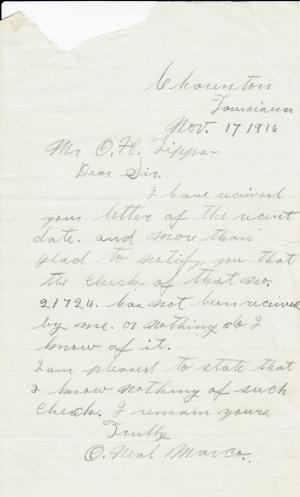 Charenton
Louisiana
Nov. 17 1916
Mr O. H. Lipps-
Dear Sir.
I have recieved
your letter of the recent
date. and more than
glad to notify you that
the check of that no.
21724. has not been received
by me. or nothing do I
know of it.
I am pleased to state that
I know nothing of such
check. I remain yours
Trully
O. Neal Marco.